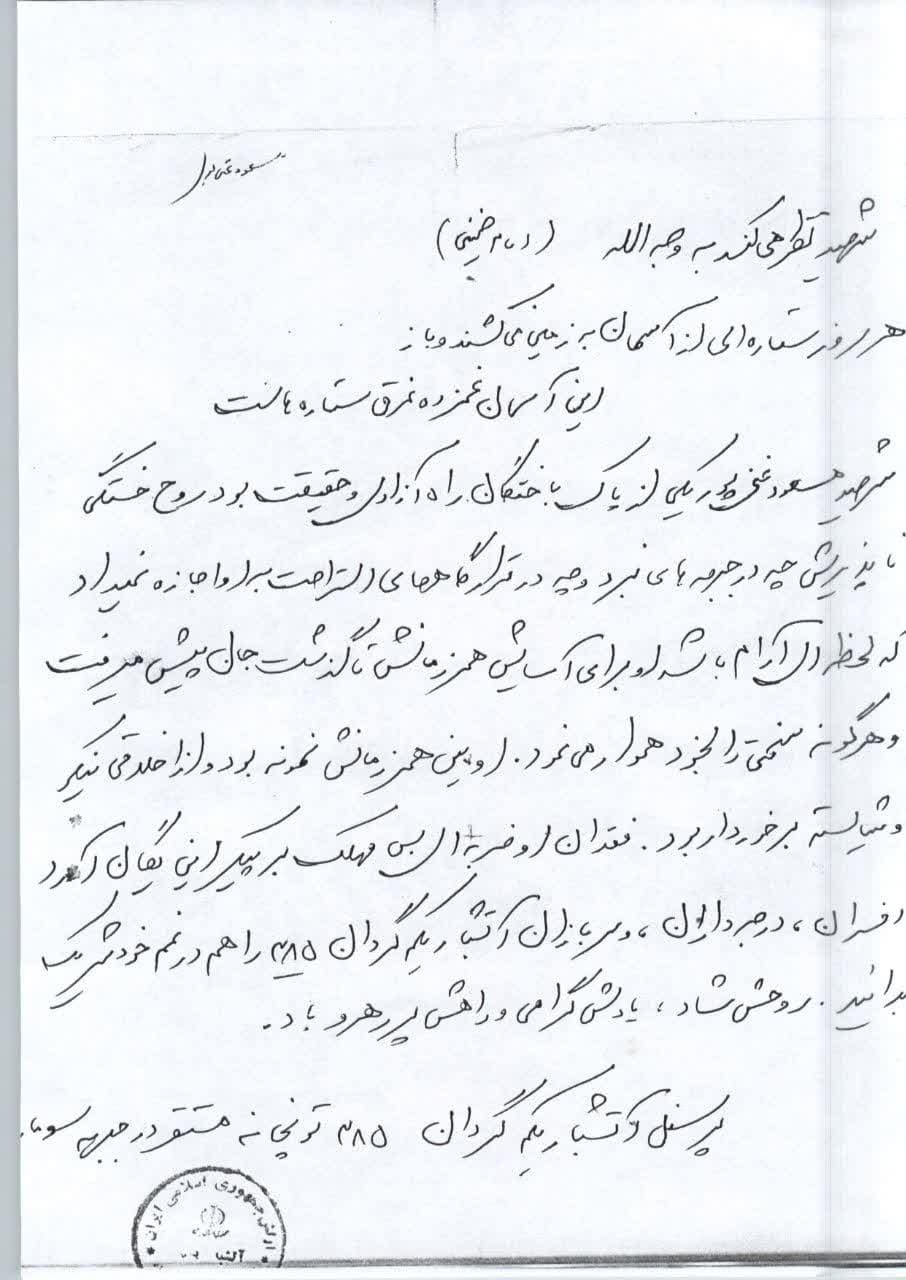 مسعود غنی پور
شهید نظر می کند به وجه الله (امام خمینی)
هر روز ستاره ای از آسمان به زمین می کشند و باز
این آسمان غمزده غرق ستاره هاست
شهید مسعود غنی پور یکی از پاک باختگان راه آزادی و حقیقت بود روح خستگی
ناپذیرش چه در جبهه های نبرد و چه در قرارگاههای استراحت به او اجازه نمیداد
که لحظه ای آرام باشد او برای آسایش همرزمانش تا گذشت جان پیش میرفت
و هرگونه سختی را بخود هموار می نمود. او بین همرزمانش نمونه بود و از اخلاقی نیکو
و شایسته برخوردار بود. فقدان او ضربه ای بس مهلک بر پیکر این یگان آورد
افسران، درجه داران، و سربازان آتشبار یکم گردان ۳۸۵ را هم در غم خود شریک
بدانید. روحش شاد، یادش گرامی و راهش پر رهرو باد.
پرسنل آتشبار یکم گردان ۳۸۵ توپخانه مستقر در جبهه سومار
ارتش جمهوری اسلامی ایران